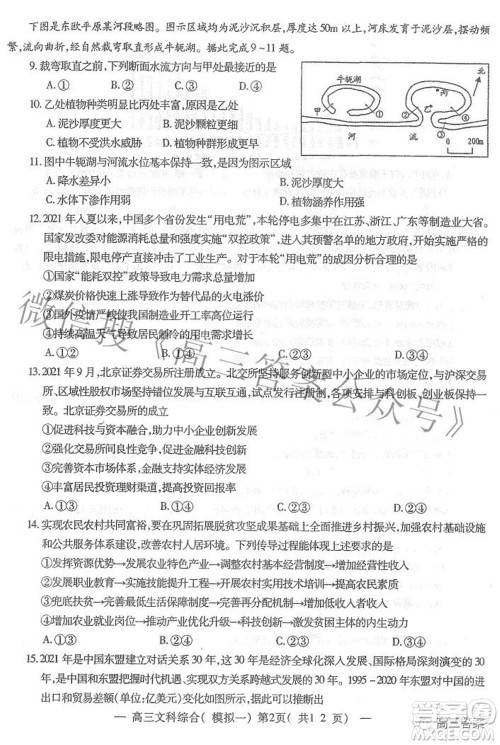 下图是东欧平原某河段略图。图示区域均为泥沙沉积层，厚度达50m以上，河床发育于泥沙层，摆动频
繁，流向曲折，经自然裁弯取直形成牛轭湖。据此完成9～11题。
9.裁弯取直之前，下列断面水文特征与甲处最接近的是
A.① B.② C.③ D.④
10.乙处植物种类明显比丙处丰富，原因是乙处
A.泥沙厚度更大 B.泥沙颗粒更细
C.植物不受洪水威胁 D.植物群落形成早
牛轭湖
甲 ① 乙 丙 ② ③ ④
河 流
0 200m
11.图中牛轭湖与河流水位基本保持一致，是因为图示区域
A.降水差异小 B.泥沙厚度大
C.水体下渗作用弱 D.植物涵养作用强
12.2021年入夏以来，中国多个省份发生“用电荒”，本轮停电多集中在江苏、浙江、广东等制造业大省。
国家发改委对能源消耗总量和强度实施“双控政策”，进入其预警名单的地方政府，开始实施严格的
限电措施，限电停产直接冲击了工业生产。对于本轮“用电荒”的成因分析合理的是
①国家“能耗双控”政策导致电力需求总量增加
②煤炭价格快速上涨导致作为替代品的火电大增
③国外疫情严峻使我国制造业开工率高于往年
④持续高温天气导致居民生活和制冷的用电增长
A.①② B.①③ C.②④ D.③④
13.2021年9月，北京证券交易所注册成立。北交所坚持服务创新型中小企业的市场定位，与沪深交易
所、区域性股权市场坚持错位发展与互联互通，试点证券发行注册制，相关安排与科创板、创业板
总体保持一致。北京证券交易所的成立
①促使科技与资本融合，助力中小企业创新发展
②优化金融资源配置，促进金融科技创新
③完善资本市场体系，健全基础金融制度
④丰富居民投资理财渠道，提高居民财产收入
A.①③ B.①④ C.②③ D.②④
14.实现农业农村共同富裕，要在巩固拓展脱贫攻坚成果基础上全面推进乡村振兴，加强农村基础设施
和公共服务体系建设，改善农村人居环境。下列传导过程能体现上述要求的是
①发挥资源优势→发展农业特色产业→调整农村基本经营制度→增强农村经营活力
②开展农技推广→培训农村实用技术人才→提升农业科技水平→培育高素质农民
③兜底扶贫措施→完善农村养老体系→增加农村低保户收入→实现农民同步富裕
④扶持小微农企→延伸特色农业产业链→增加农业产业附加值→增加农民收入
A.①② B.①③ C.②④ D.③④
15.2021年是中国东盟建立对话关系30年，这30年，是经济全球化深入发展、国际格局深刻演变的30
年，也是中国东盟把握时代大势、实现双方关系跨越式发展的30年。1995-2020年东盟对中国的进
出口和贸易差额（单位：亿美元）变动如下图所示，对此解读正确的是
— 高三文科综合（模拟一）第2页（共12页） —
微信搜《高三答案公众号》
高三答案